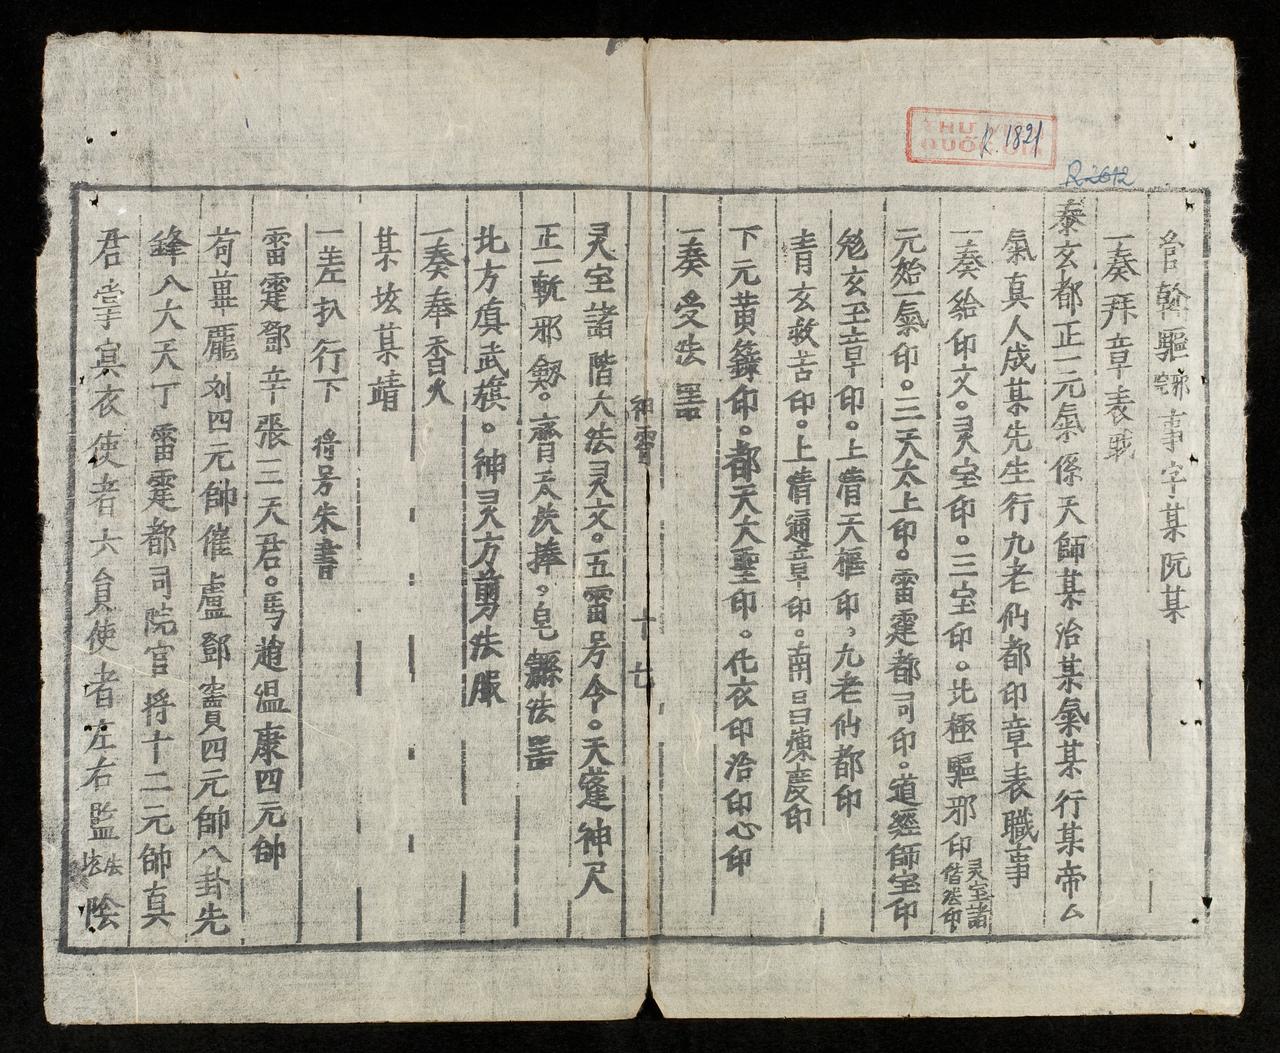 THƯ VIỆN
QUỐC GIA
R.1821
R 2612
管斡驅邪宗事字某阮某
一奏拜章表职
泰玄都正一元氣係天師某治某氣某行某帝厶
氣真人成某先生行九老仙都印章表職事
一奏給印文。灵宝印。三宝印。北極驅邪印灵宝諸偕法印
元始一氣印。三天太上印。雷霆都司印。道經師宝印
勉玄至章印。上清天樞印。九老仙都印
青玄救苦印。上清通章印。南昌煉度印
下元黄籙印。都天大聖印。化衣印治印心印
一奏受法噐
神霄 十七
灵宝諸階大法灵文。五雷号令。天蓬神尺
正一斬邪劔。齊天庆捧。皂纛法噐
北方真武旗。神灵方剪法服
一奏奉香火
某坛某靖
一差扒行下 将号朱書
雷霆鄧辛張三天君。馬趙温康四元帥
苟畢龐刘四元帥催盧鄧竇四元帥八卦先
鋒八大天丁雷霆都司院官将十二元帥真
君掌寞衣使者六員使者左右監坛法陰